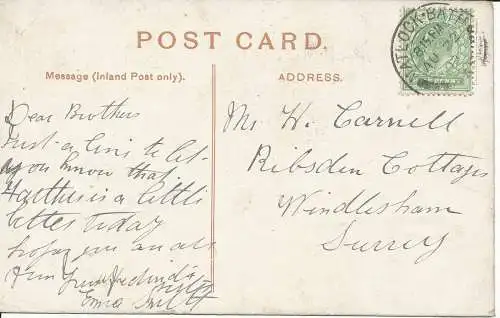 POST CARD.
Message (Inland Post only).
ADDRESS.
MATLOCK-BATH
Dear Brothers
Just a line to let
you know that
is a little
better today
hoping you are
from
Emma Smith
Mr H. Carnell
Ribsden Cottages
Windlesham
Surrey